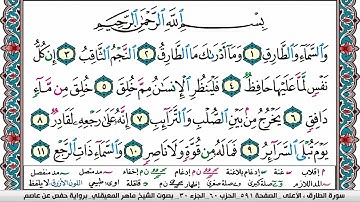 بِسْمِ ٱللَّهِ ٱلرَّحْمَٰنِ ٱلرَّحِيمِ
وَٱلسَّمَآءِ وَٱلطَّارِقِ ١ وَمَآ أَدْرَىٰكَ مَا ٱلطَّارِقُ ٢ ٱلنَّجْمُ ٱلثَّاقِبُ ٣ إِن كُلُّ
نَفْسٍ لَّمَّا عَلَيْهَا حَافِظٌ ٤ فَلْيَنظُرِ ٱلْإِنسَٰنُ مِمَّ خُلِقَ ٥ خُلِقَ مِن مَّآءٍ
دَافِقٍ ٦ يَخْرُجُ مِنۢ بَيْنِ ٱلصُّلْبِ وَٱلتَّرَآئِبِ ٧ إِنَّهُۥ عَلَىٰ رَجْعِهِۦ لَقَادِرٌ ٨
يَوْمَ تُبْلَى ٱلسَّرَآئِرُ ٩ فَمَا لَهُۥ مِن قُوَّةٍ وَلَا نَاصِرٍ ١٠ وَٱلسَّمَآءِ ذَاتِ ٱلرَّجْعِ ١١
سورة الطارق ، الأعلى ، الصفحة ٥٩١ الحزب ٦٠ الجزء ٣٠ بصوت الشيخ ماهر المعيقلي برواية حفص عن عاصم